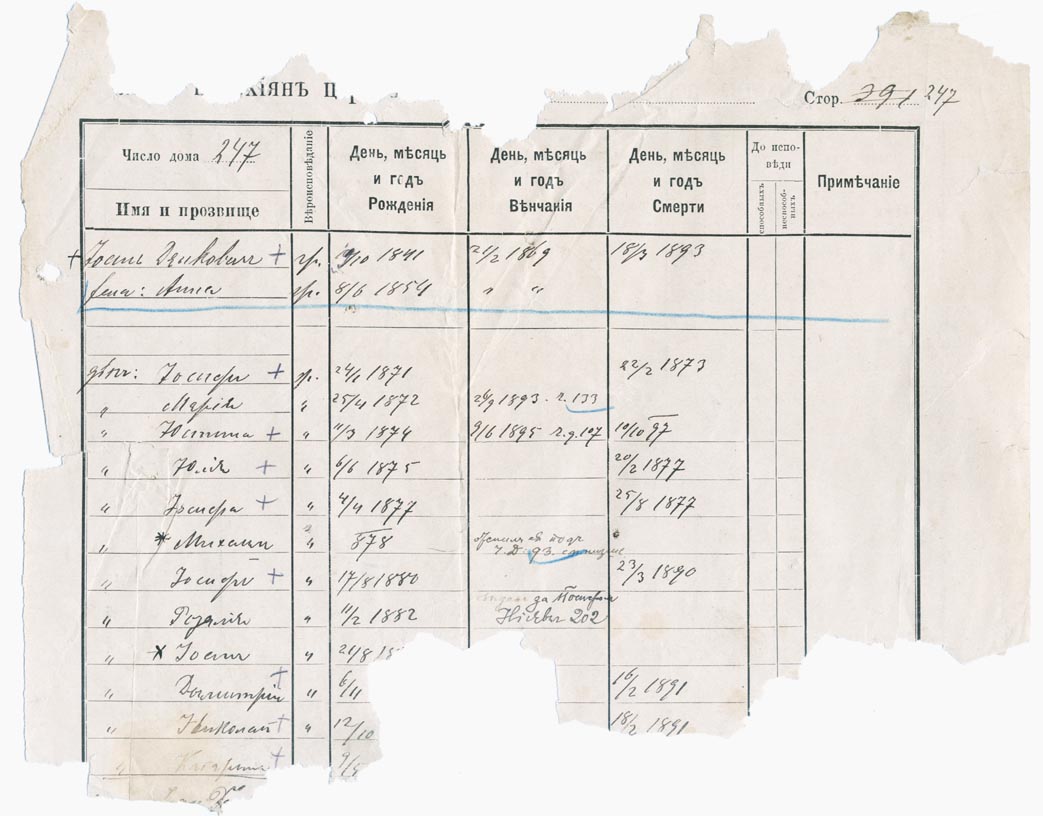 хіянъ
Стор. 391 247
Число дома 247
Имя и прозвище
Вѣроисповѣданіе
День, мѣсяць и годъ Рожденія
День, мѣсяць и годъ Вѣнчанія
День, мѣсяць и годъ Смерти
До испо-вѣди
способныхъ
неспособ-ныхъ
Примѣчаніе
+ Іоаннъ + гр. 9/10 1841 21/2 1869 18/3 1893
жена: Анна гр. 8/6 1854 " "
дѣти: Іосифъ + гр. 24/1 1871 22/2 1873
" Марія " 25/4 1872 1893 ч. 133
" Юстина + " 11/3 1874 9/6 1895 ч. д. 107 10/10 97
" Юлія + " 6/6 1875 20/2 1877
" Іосифа + " 4/4 1877 25/8 1877
" * Михаилъ " 878
ч. Д 93.
" Іосифъ + " 17/8 1880 23/3 1890
" Розалія " 11/2 1882 за Іосифа
202
" x Іоаннъ " 21/8
" Димитрій + " 6/11 16/2 1891
" Николай + " 12/10 18/2 1891
" + 9/5